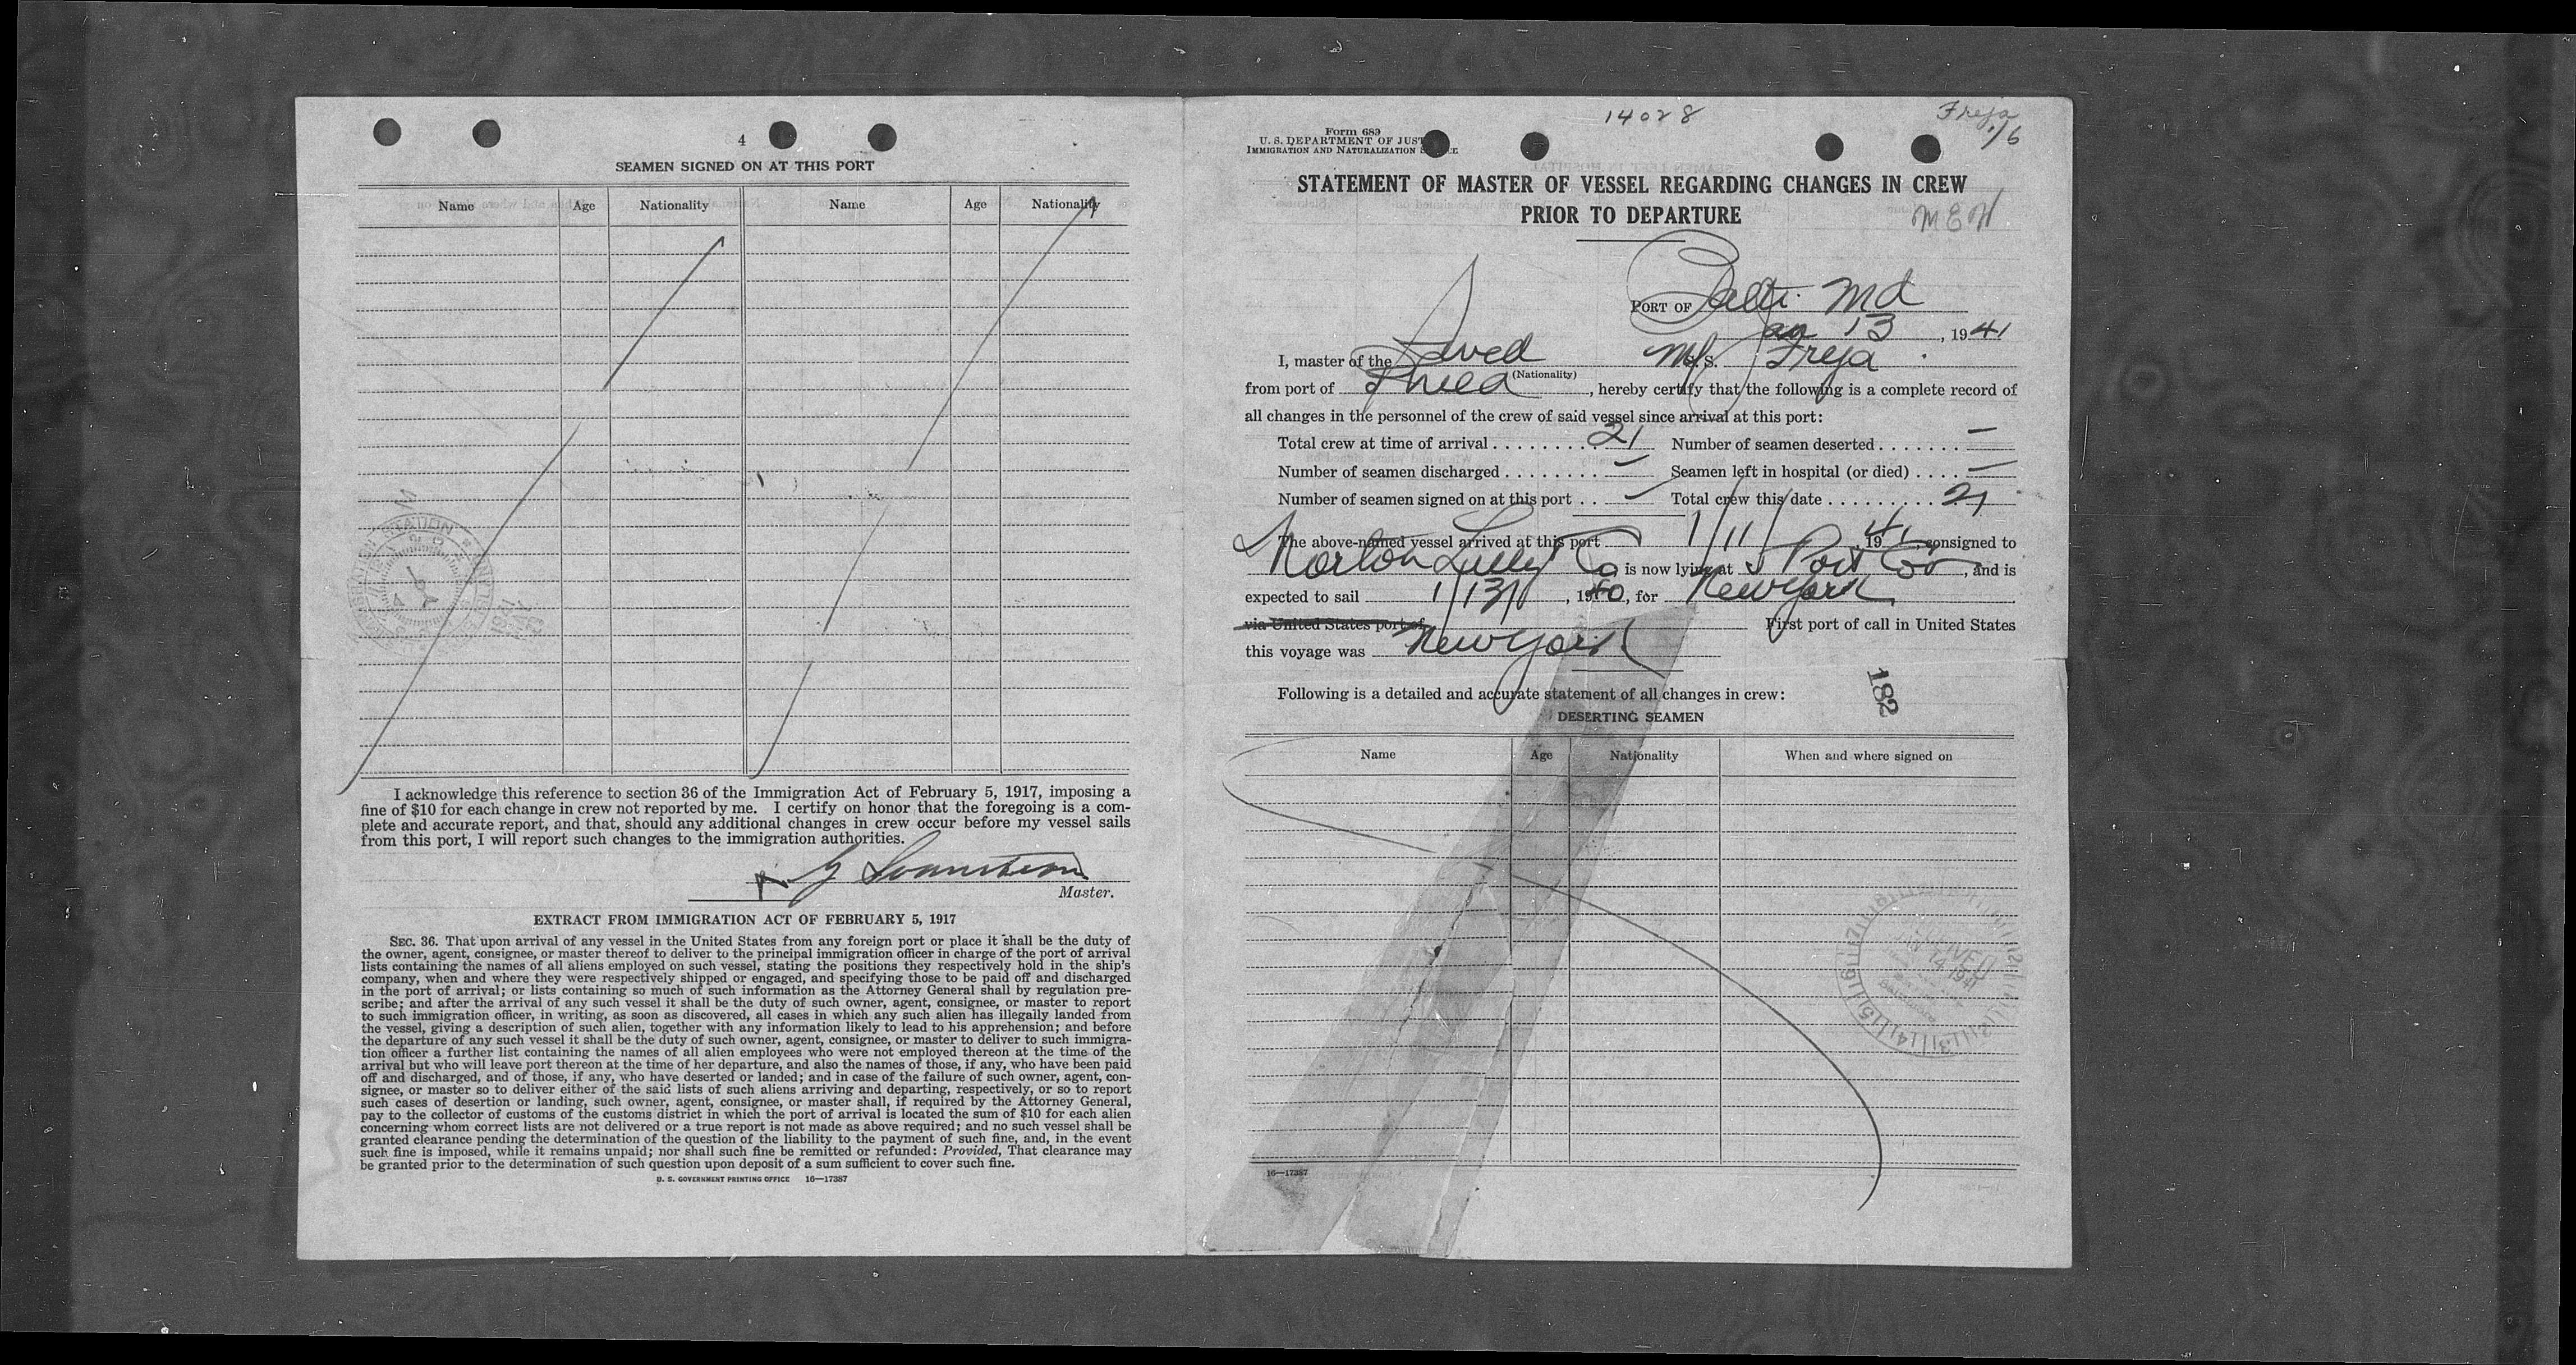 4
SEAMEN SIGNED ON AT THIS PORT
Name Age Nationality Name Age Nationality
I acknowledge this reference to section 36 of the Immigration Act of February 5, 1917, imposing a
fine of $10 for each change in crew not reported by me. I certify on honor that the foregoing is a com-
plete and accurate report, and that, should any additional changes in crew occur before my vessel sails
from this port, I will report such changes to the immigration authorities.
Master.
EXTRACT FROM IMMIGRATION ACT OF FEBRUARY 5, 1917
SEC. 36. That upon arrival of any vessel in the United States from any foreign port or place it shall be the duty of
the owner, agent, consignee, or master thereof to deliver to the principal immigration officer in charge of the port of arrival
lists containing the names of all aliens employed on such vessel, stating the positions they respectively hold in the ship's
company, when and where they were respectively shipped or engaged, and specifying those to be paid off and discharged
in the port of arrival; or lists containing so much of such information as the Attorney General shall by regulation pre-
scribe; and after the arrival of any such vessel it shall be the duty of such owner, agent, consignee, or master to report
to such immigration officer, in writing, as soon as discovered, all cases in which any such alien has illegally landed from
the vessel, giving a description of such alien, together with any information likely to lead to his apprehension; and before
the departure of any such vessel it shall be the duty of such owner, agent, consignee, or master to deliver to such immigra-
tion officer a further list containing the names of all alien employees who were not employed thereon at the time of the
arrival but who will leave port thereon at the time of her departure, and also the names of those, if any, who have been paid
off and discharged, and of those, if any, who have deserted or landed; and in case of the failure of such owner, agent, con-
signee, or master so to deliver either of the said lists of such aliens arriving and departing, respectively, or so to report
such cases of desertion or landing, such owner, agent, consignee, or master shall, if required by the Attorney General,
pay to the collector of customs of the customs district in which the port of arrival is located the sum of $10 for each alien
concerning whom correct lists are not delivered or a true report is not made as above required; and no such vessel shall be
granted clearance pending the determination of the question of the liability to the payment of such fine, and, in the event
such fine is imposed, while it remains unpaid; nor shall such fine be remitted or refunded: Provided, That clearance may
be granted prior to the determination of such question upon deposit of a sum sufficient to cover such fine.
U. S. GOVERNMENT PRINTING OFFICE 16—17387
14028
Freja
1/6
Form 689
U. S. DEPARTMENT OF JUST
IMMIGRATION AND NATURALIZATION
STATEMENT OF MASTER OF VESSEL REGARDING CHANGES IN CREW
PRIOR TO DEPARTURE
MEW
PORT OF Balti. Md
Jan 13, 1941
I, master of the Swed M/S. S. Freja
(Nationality)
from port of , hereby certify that the following is a complete record of
all changes in the personnel of the crew of said vessel since arrival at this port:
Total crew at time of arrival 21 Number of seamen deserted —
Number of seamen discharged — Seamen left in hospital (or died) —
Number of seamen signed on at this port — Total crew this date 21
The above-named vessel arrived at this port 1/11/, 1941, consigned to
Norton Lilly Co is now lying at Port Cov, and is
expected to sail 1/13/, 1940, for New York
via United States port of First port of call in United States
this voyage was New York
Following is a detailed and accurate statement of all changes in crew:
182
DESERTING SEAMEN
Name Age Nationality When and where signed on
RECEIVED
JAN 14 1941
Baltimore
16—17387